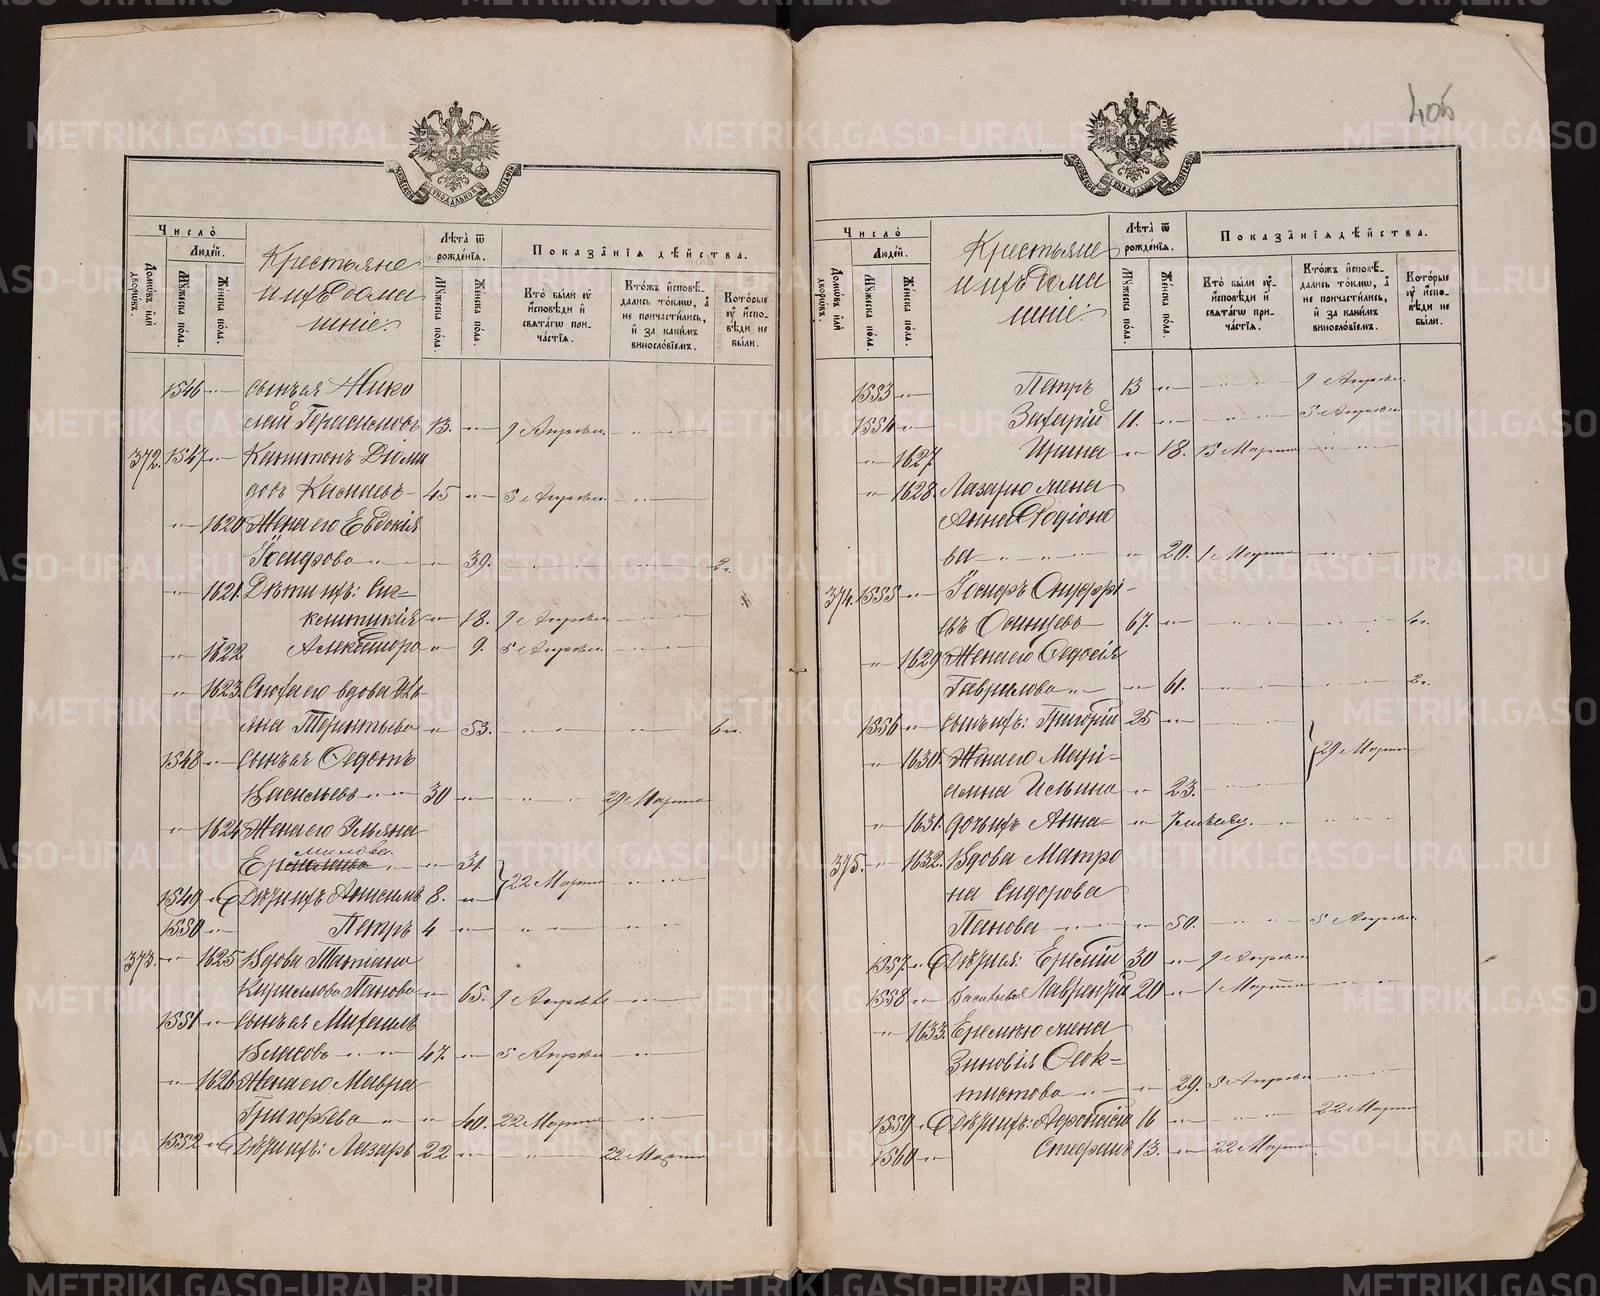 405
Число̀
Людей.
Домѡвъ или дворѡвъ.
Мꙋжеска пола.
Женска пола.
Крестьяне
и ихъ дома
шніе:
Лѣта ѿ рожденїѧ.
Мꙋжеска пола.
Женска пола.
Показанїѧ дѣйства.
Кто были оу исповѣди и свѧтагѡ причастїѧ.
Ктожъ исповѣдались токмѡ, а не причастились, и за какимъ винословїемъ.
Которые оу исповѣди не были.
1546 сынъ ея Нико
лай Герасимовъ 13. 9 Апрѣля
372. 1547 Капитонъ Діоми
довъ 45 5 Апрѣля
1620 Жена его Евдокія
Іосифова 39. 2 г.
1621. Дѣти ихъ: Син=
клитикія 18. 9 Апрѣля
1622 Александра 9. 5 Апрѣля
1623. Сноха его вдова Улі
яна Терентьева 53. 6 л.
1548 сынъ ея Федотъ
Васильевъ 30 29 Марта
1624. Жена его Ульяна
Ермилова 31.
22 Марта
1549 Дѣти ихъ 8.
1550 Петръ 4
373. 1625 Вдова Татіана
Кириллова Панова 65. 9 Апрѣля
1551 сынъ ея Михаилъ
Власовъ 47. 5 Апрѣля
1626 Жена его Мавра
Григорьева 40. 22 Марта
1552 Дѣти ихъ: Лазарь 22 22 Марта
Число̀
Людей.
Домѡвъ или дворѡвъ.
Мꙋжеска пола.
Женска пола.
Крестьяне
и ихъ дома
шніе:
Лѣта ѿ рожденїѧ.
Мꙋжеска пола.
Женска пола.
Показанїѧ дѣйства.
Кто были оу исповѣди и свѧтагѡ причастїѧ.
Ктожъ исповѣдались токмѡ, а не причастились, и за какимъ винословїемъ.
Которые оу исповѣди не были.
1553 Петръ 13 9 Апрѣля
1554 Захарій 11. 5 Апрѣля
1627. Ирина 18. 15 Марта
1628. Лазарю жена
Анна Родіоно
ва 20. 1 Марта
374. 1555 Іосифъ Онуфрі-
евъ 67. 6 л.
1629 Жена его Федосія
Гаврилова 61. 2 г.
1556 сынъ ихъ: Григорій 25
29 Марта
1630. Жена его Марі-
амна Ильина 23.
1631. дочь ихъ Анна
375. 1632. Вдова Матро
на Сидорова
Панова 50. 5 Апрѣля
1557. Дѣти ея: Еремѣй 30 9 Апрѣля
1558 Васильевы Лаврентій 20 1 Марта
1633. Еремѣю жена
Зиновія Феок=
тистова 29. 5 Апрѣля
1559 Дѣти ихъ: 16 22 Марта
1560 Стефанъ 13. 22 Марта
METRIKI.GASO-URAL.RU